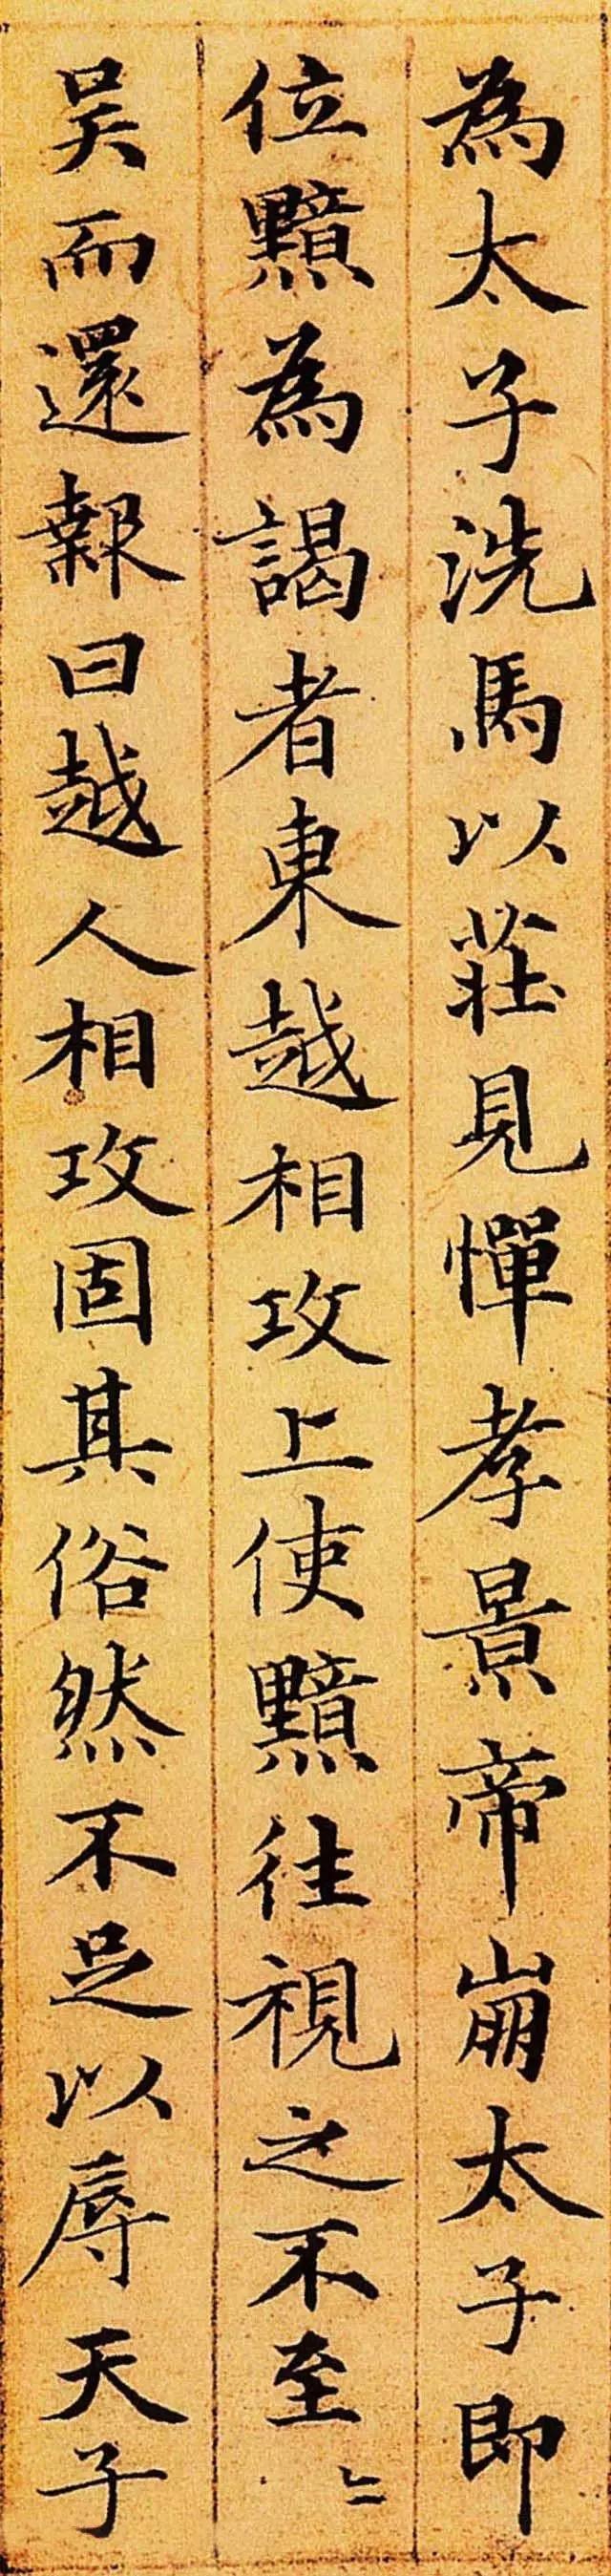 為太子洗馬以莊見憚孝景帝崩太子即
位黯為謁者東越相攻上使黯往視之不至〻
吴而還報曰越人相攻固其俗然不足以辱天子